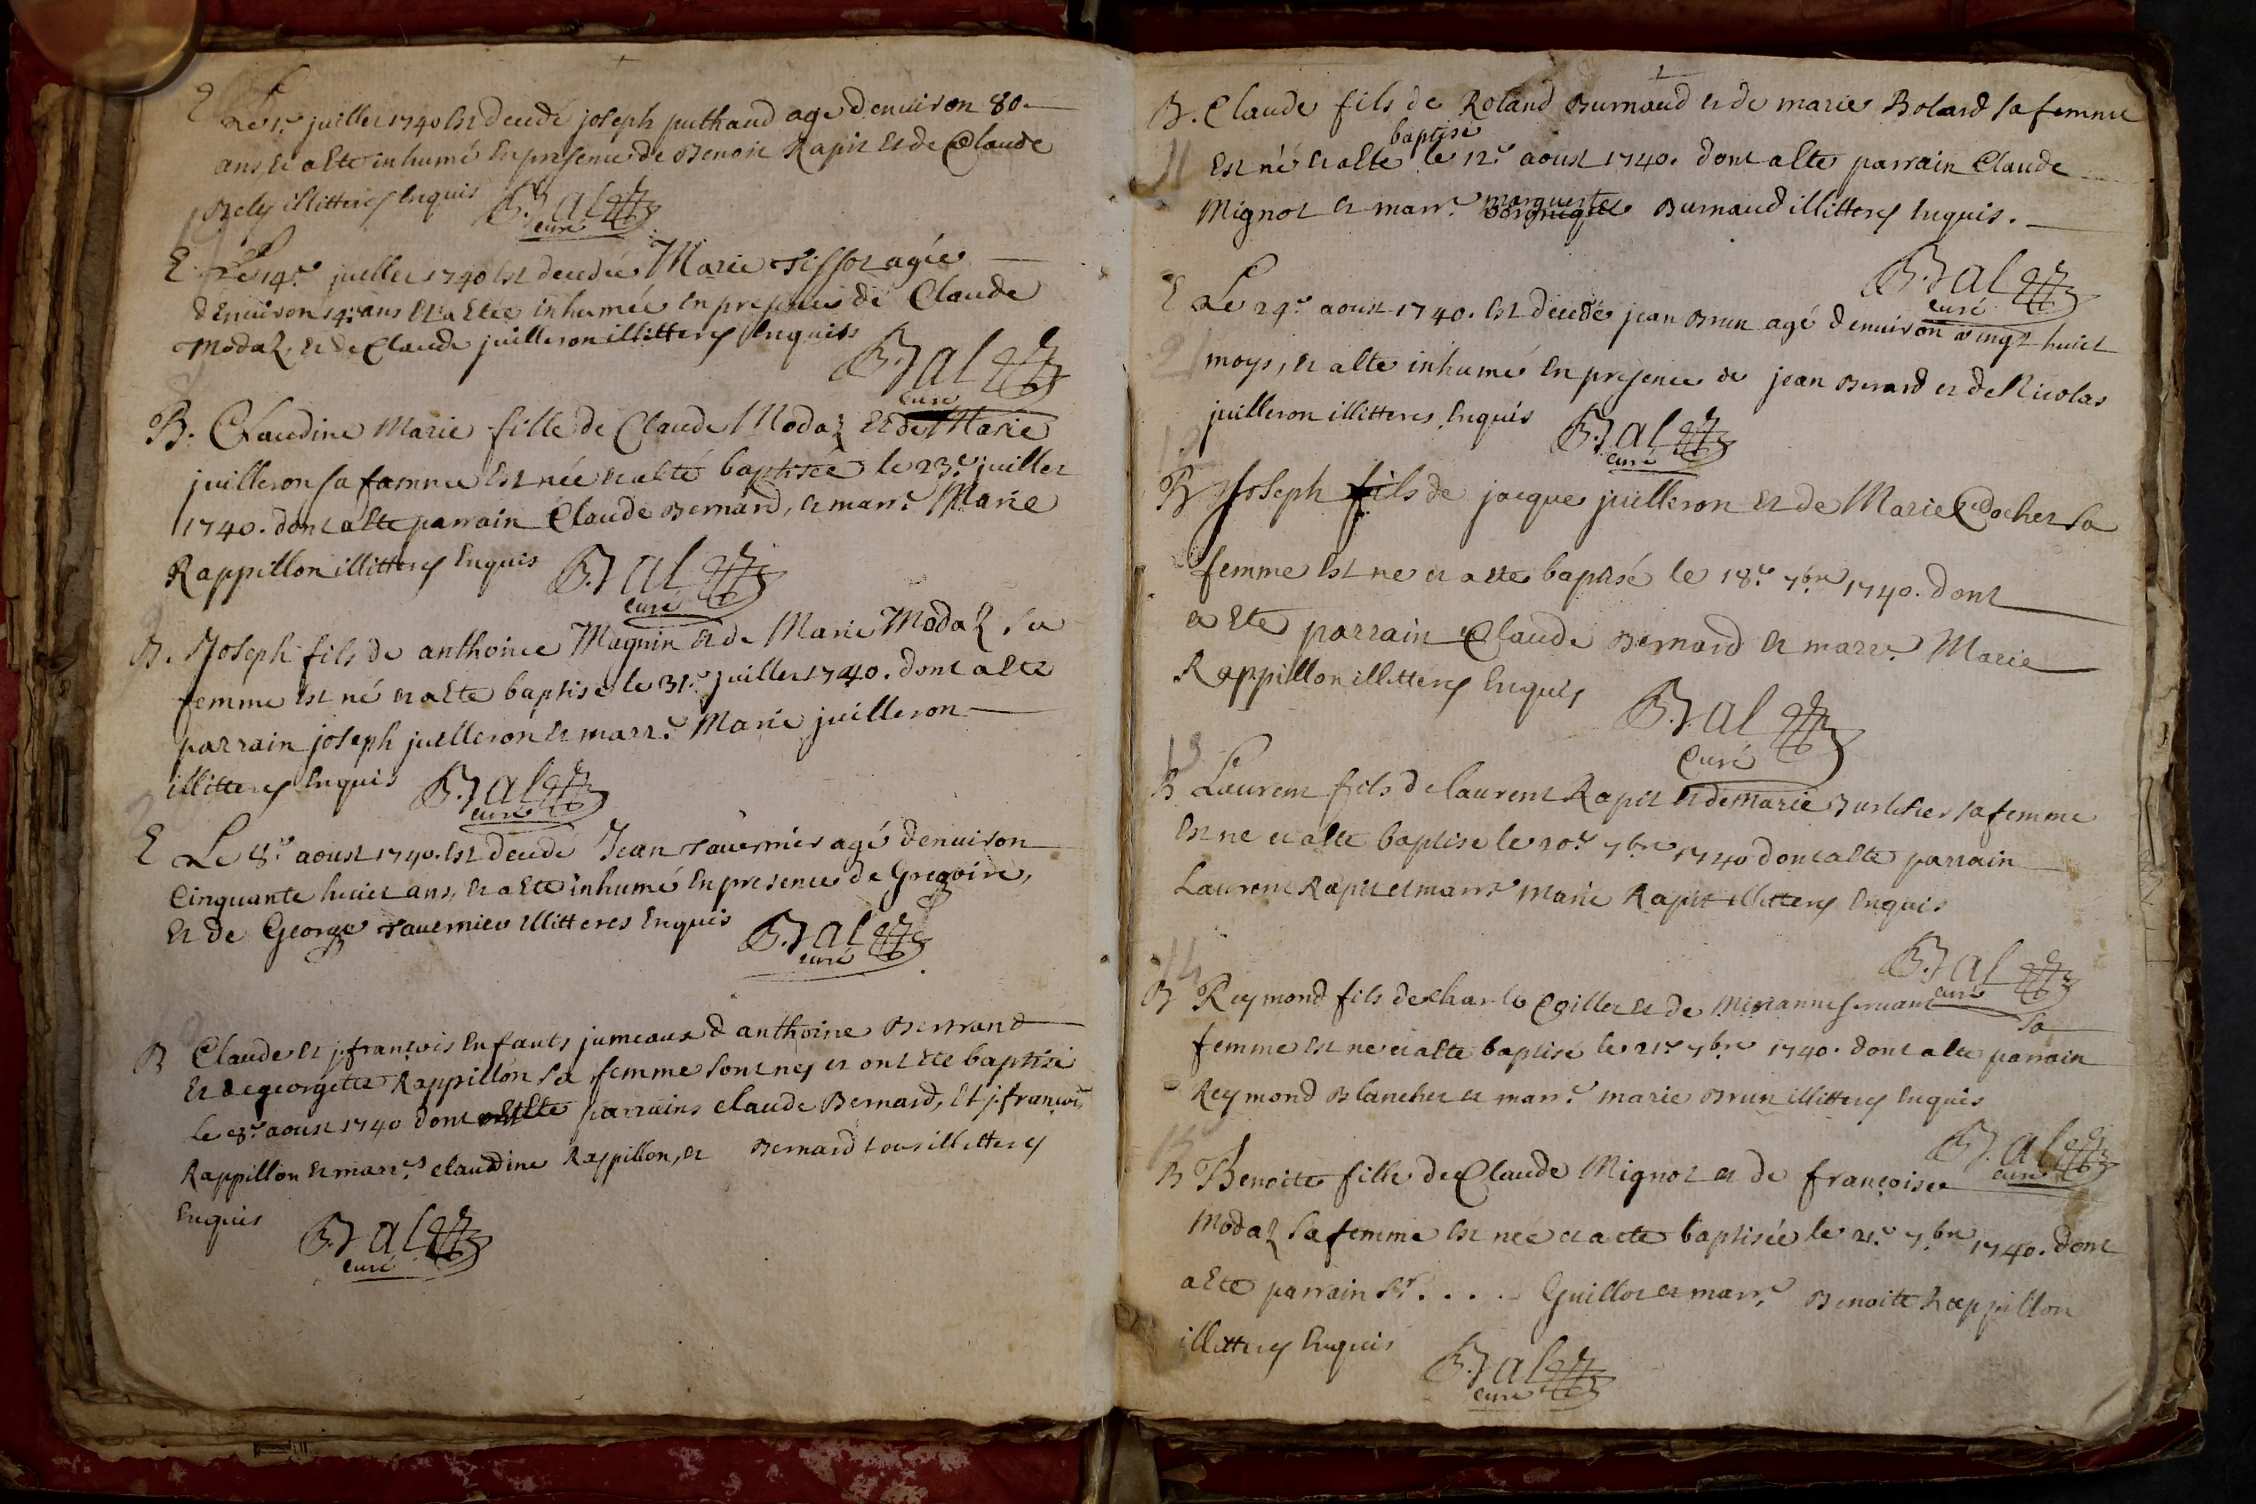 E Le 1.r juillet 1740 Est decedé joseph puthaud agé denuiron 80
ans, et a Eté inhumé En presence de Benoit Rapit Et de Claude
Bely illitterés Enquis B. Bal
curé
E Le 14.e juillet 1740 Est decedée Marie Tissot agée
denuiron 14. ans Et a Etée inhumée En presence de Claude
Modaz, et de Claude juilleron illitterés Enquis B. Bal
curé
B. Claudine Marie fille de Claude Modaz Et de Marie
juilleron sa famme Est née et a Eté baptisée le 23.e juillet
1740. dont a Ete parrain Claude Bernard, et marr.e Marie
Rappillon illitterés Enquis B. Bal
curé
B. Joseph fils de anthoine Magnin et de Marie Modaz sa
femme Est né et a Ete baptisé le 31.e juillet 1740. dont a Ete
parrain joseph juilleron et marr.e Marie juilleron
illitterés Enquis B. Bal
curé
E Le 8.e aoust 1740. Est decedé Jean Tauernier agé denuiron
Cinquante huict ans, et a Ete inhumé En presence de Gregoire,
Et de George Tauernier illitteres Enquis B. Bal
curé
B Claude et j. françois Enfants jumeaux d anthoine Bernard
Et de georgette Rappillon sa femme sont nés et ont Ete baptisé
le 8.e aoust 1740 dont parrains claude Bernard, Et j. françois
Rappillon et marr.es claudine Rappillon, et Bernard tous illitterés
Enquis B. Bal
curé
B. Claude fils de Roland Burnaud et de marie Bolard sa femme
baptisé
11 Est né et a Ete le 12.e aoust 1740. dont a Ete parrain Claude
Mignot et marr.e marguerite Burnaud illitterés Enquis.
B. Bal
curé
E Le 24.e aoust 1740. Est decedé jean Brun agé denuiron vingt huict
moys, et a Ete inhumé En presence de jean Berard et de Nicolas
juilleron illitteres Enquis B. Bal
curé
B Joseph fils de jacque juilleron et de Marie Cochet sa
femme Est ne et a Ete baptisé le 18.e 7.bre 1740. dont
a Ete parrain Claude Bernard et marr.e Marie
Rappillon illitterés Enquis B. Bal
curé
13
B Laurent fils de laurent Rapit et de Marie sa femme
Est ne et a Ete baptisé le 20.e 7.bre 1740 dont a Ete parrain
Laurent Rapit et marr.e Marie Rapit illitterés Enquis
B. Bal
curé
14
B Reymond fils de charle Coillet et de Marianne seruant sa
femme Est ne et a Ete baptisé le 21.e 7.bre 1740. dont a Ete parrain
Reymond Blanchet et marr.e marie Brun illitterés Enquis
B. Bal
curé
15
B Benoite fille de Claude Mignot et de françoise
Modaz sa femme Est née et a ete baptisée le 21.e 7.bre 1740. dont
a Ete parrain Sr. . . . . Guillot et marr.e Benoite Rappillon
illitterés Enquis B. Bal
curé